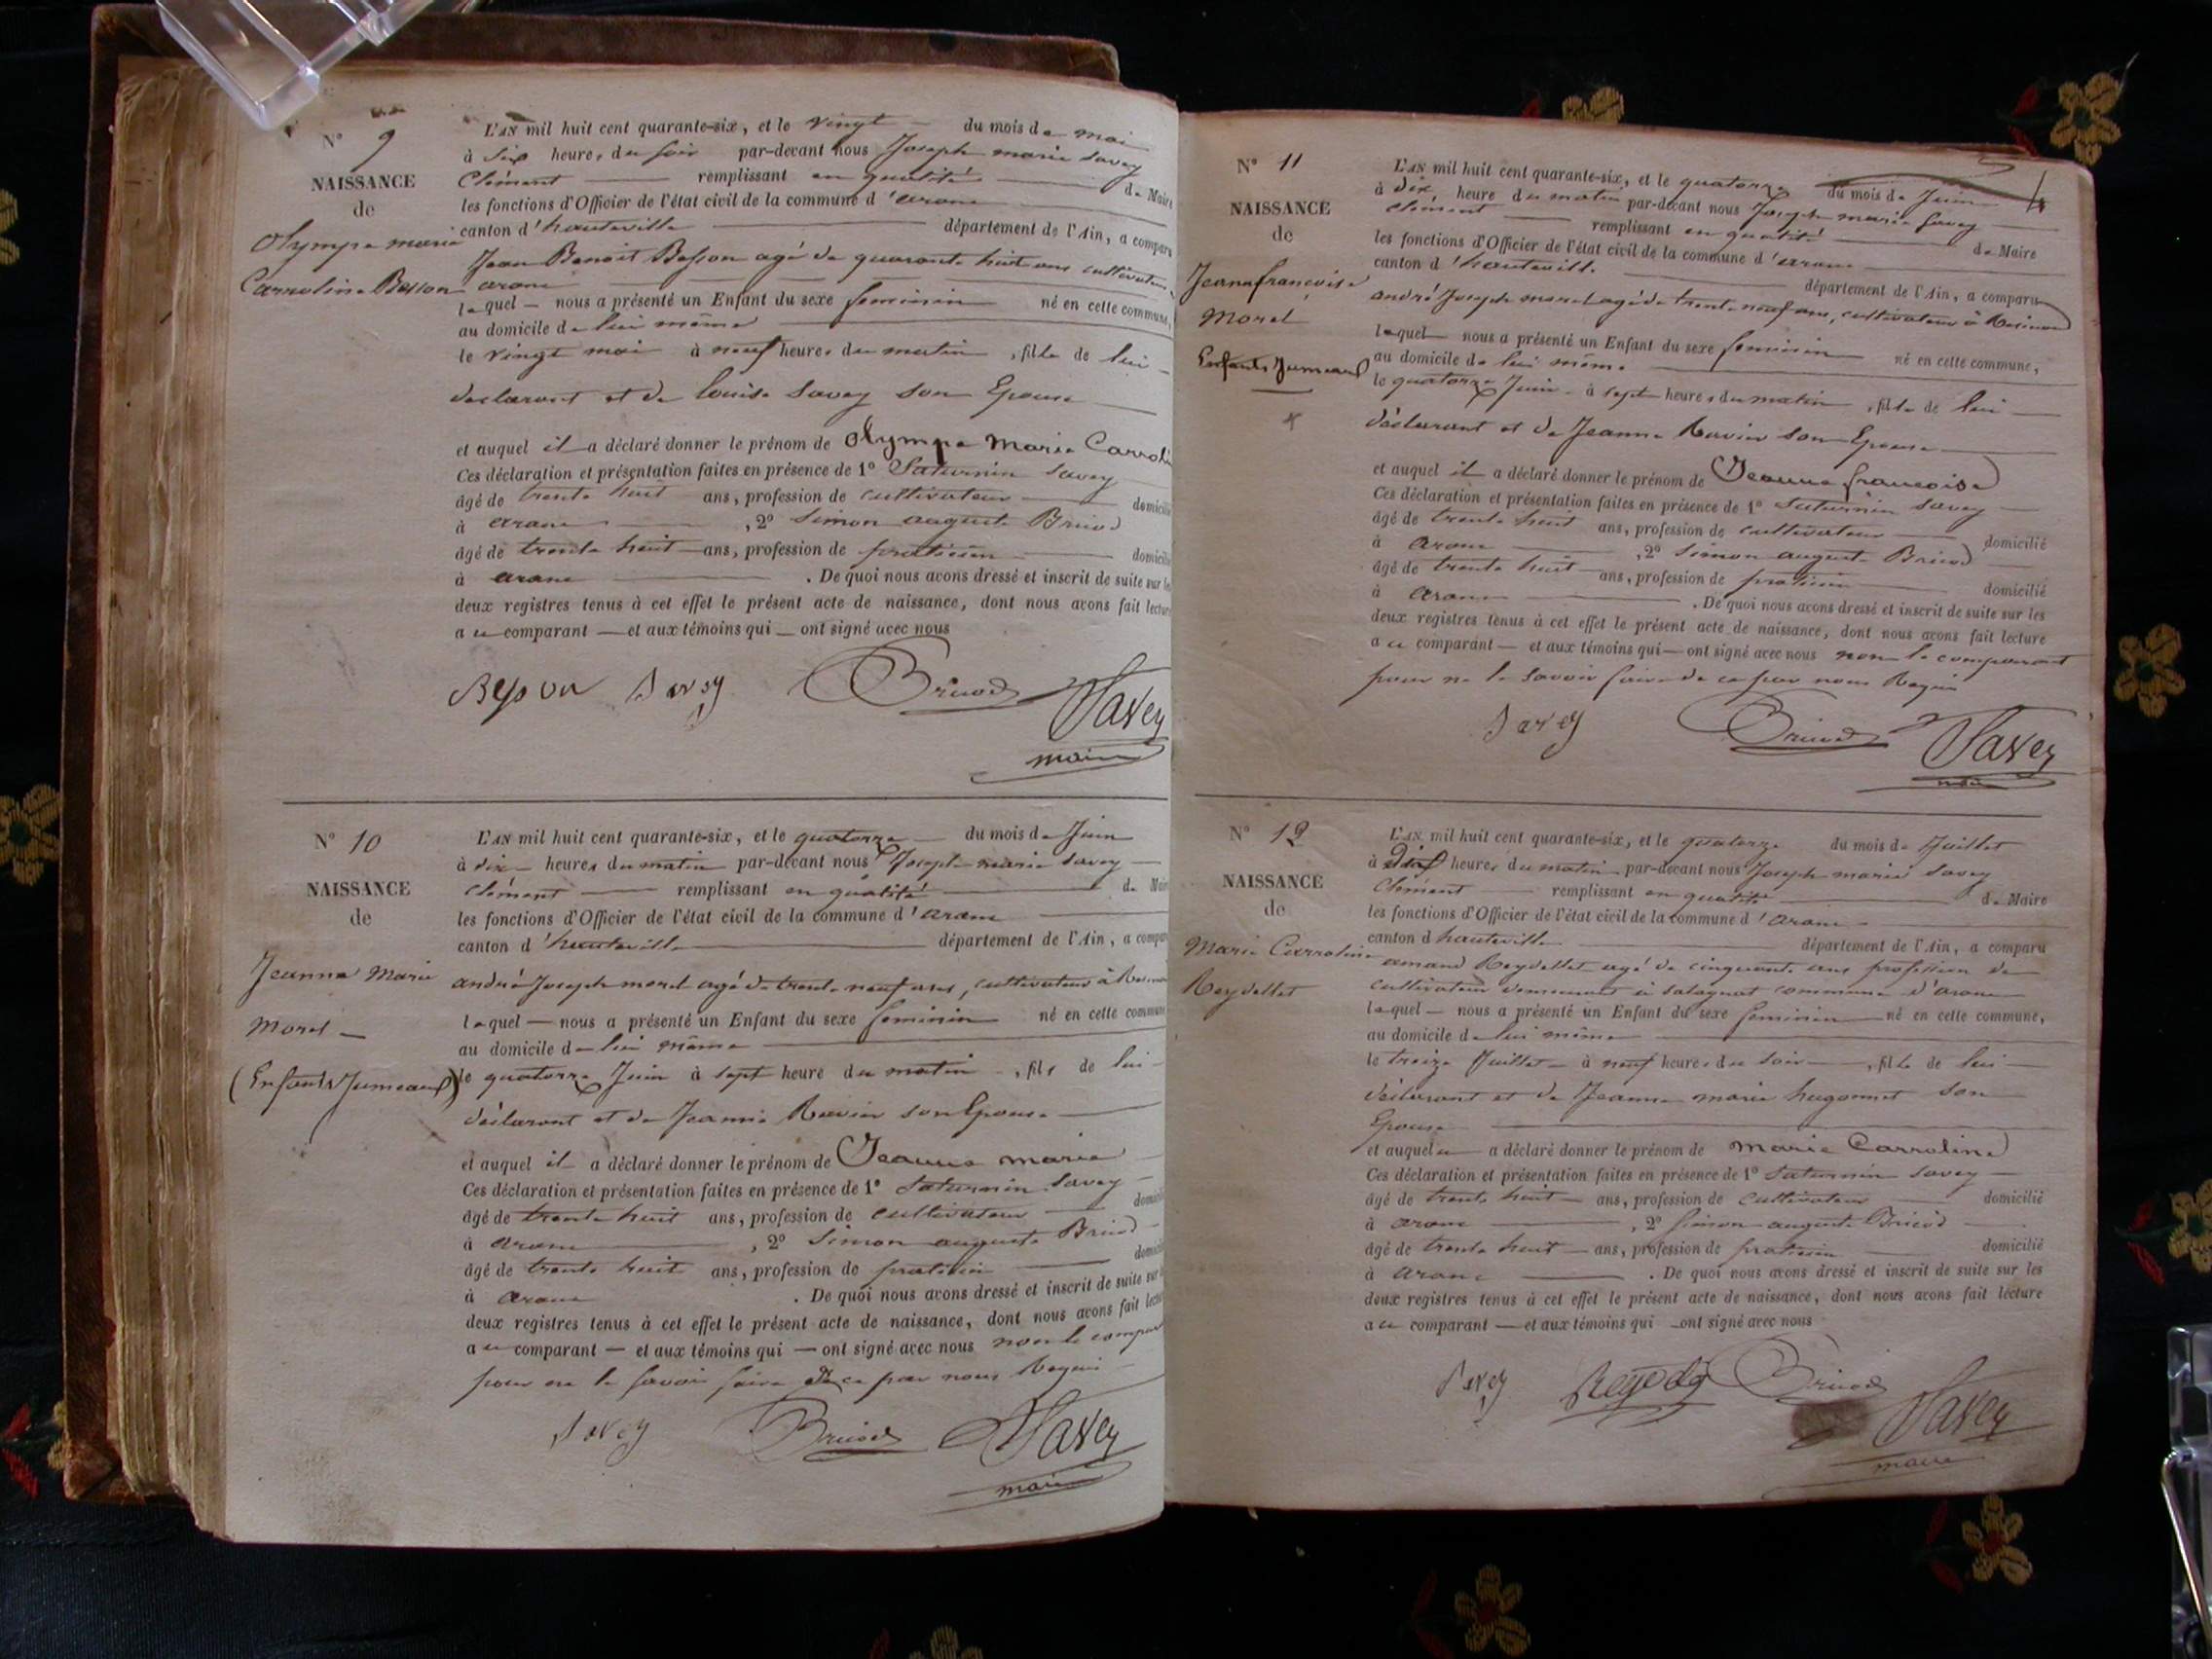 N° 9
NAISSANCE
de
Olympe marie
Carroline Besson
L'AN mil huit cent quarante-six, et le vingt du mois de mai
à six heures du soir par-devant nous Joseph marie savey
Clément remplissant en qualité de Maire
les fonctions d'Officier de l'état civil de la commune d'arane
canton d'hauteville département de l'Ain, a comparu
Jean Benoit Besson agé de quarante huit ans cultivateur
arane
lequel nous a présenté un Enfant du sexe feminin né en cette commune,
au domicile de lui même
le vingt mai à neuf heures du matin, fille de lui
déclarant et de louise savey son Epouse
et auquel il a déclaré donner le prénom de Olympe Marie Carroli
Ces déclaration et présentation faites en présence de 1° Saturnin savey
âgé de trente huit ans, profession de cultivateur domicilié
à arane, 2° Simon auguste Bricod
âgé de trente huit ans, profession de praticien domicilié
à arane. De quoi nous avons dressé et inscrit de suite sur les
deux registres tenus à cet effet le présent acte de naissance, dont nous avons fait lecture
au comparant et aux témoins qui ont signé avec nous
Besson Savey Bricod Savey
maire
N° 10
NAISSANCE
de
Jeanne Marie
Morel
(Enfants Jumeaux)
L'AN mil huit cent quarante-six, et le quatorze du mois de Juin
à dix heures du matin par-devant nous Joseph marie savey
Clément remplissant en qualité de Maire
les fonctions d'Officier de l'état civil de la commune d'arane
canton d'hauteville département de l'Ain, a comparu
andré Joseph morel agé de trente neuf ans, cultivateur à
lequel nous a présenté un Enfant du sexe feminin né en cette commune
au domicile de lui même
le quatorze Juin à sept heure du matin, fils de lui
déclarant et de Jeanne Ravier son Epouse
et auquel il a déclaré donner le prénom de Jeanne marie
Ces déclaration et présentation faites en présence de 1° Saturnin Savey
âgé de trente huit ans, profession de cultivateur domicilié
à arane, 2° Simon auguste Bricod
âgé de trente huit ans, profession de praticien domicilié
à arane. De quoi nous avons dressé et inscrit de suite sur
deux registres tenus à cet effet le présent acte de naissance, dont nous avons fait lecture
au comparant et aux témoins qui ont signé avec nous non le compar
pour ne le savoir faire de ce par nous Requis
Savey Bricod Savey
maire
N° 11
NAISSANCE
de
Jeanne francoise
Morel
Enfants Jumeaux
L'AN mil huit cent quarante-six, et le quatorze du mois de Juin
à dix heure du matin par-devant nous Joseph marie Savey
Clément remplissant en qualité de Maire
les fonctions d'Officier de l'état civil de la commune d'arane
canton d'hauteville département de l'Ain, a comparu
andré Joseph morel agé de trente neuf ans, cultivateur à
lequel nous a présenté un Enfant du sexe feminin né en cette commune,
au domicile de lui même
le quatorze Juin à sept heures du matin, fille de lui
déclarant et de Jeanne Ravier son Epouse
et auquel il a déclaré donner le prénom de Jeanne francoise
Ces déclaration et présentation faites en présence de 1° Saturnin Savey
âgé de trente huit ans, profession de cultivateur domicilié
à arane, 2° Simon auguste Bricod
âgé de trente huit ans, profession de praticien domicilié
à arane. De quoi nous avons dressé et inscrit de suite sur les
deux registres tenus à cet effet le présent acte de naissance, dont nous avons fait lecture
au comparant et aux témoins qui ont signé avec nous non le comparant
pour ne le savoir faire de ce par nous Requis
Savey Bricod Savey
maire
N° 12
NAISSANCE
de
Marie Carroline
Reydellet
L'AN mil huit cent quarante-six, et le quatorze du mois de Juillet
à dix heures du matin par-devant nous Joseph marie Savey
Clément remplissant en qualité de Maire
les fonctions d'Officier de l'état civil de la commune d'arane
canton d'hauteville département de l'Ain, a comparu
amand Reydellet agé de cinquante ans profession de
cultivateur demeurant à commune d'arane
lequel nous a présenté un Enfant du sexe feminin né en cette commune,
au domicile de lui même
le treize Juillet à neuf heures du soir, fille de lui
déclarant et de Jeanne marie hugonnet son
Epouse
et auquel a déclaré donner le prénom de marie Carroline
Ces déclaration et présentation faites en présence de 1° Saturnin Savey
âgé de trente huit ans, profession de cultivateur domicilié
à arane, 2° Simon auguste Bricod
âgé de trente huit ans, profession de praticien domicilié
à arane. De quoi nous avons dressé et inscrit de suite sur les
deux registres tenus à cet effet le présent acte de naissance, dont nous avons fait lecture
au comparant et aux témoins qui ont signé avec nous
Savey Bricod Savey
maire